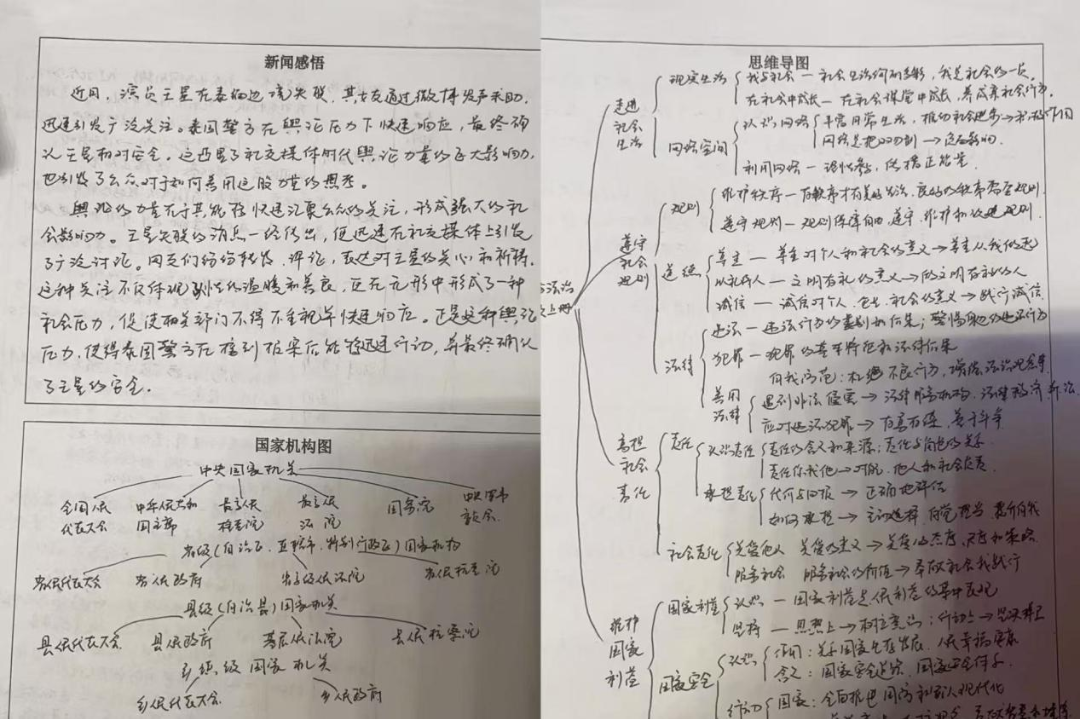 新闻感悟
近日，演员王星在泰缅边境失联，其女友通过微博发声求助，
迅速引发广泛关注。泰国警方在舆论压力下快速响应，最终确
认王星相对安全。这凸显了社交媒体时代舆论力量的巨大影响力，
也引发了公众对于如何善用这股力量的思考。
舆论的力量在于其能够快速汇聚公众的关注，形成强大的社
会影响力。王星失联的消息一经传出，便迅速在社交媒体上引发
了广泛讨论。网友们纷纷转发、评论，表达对王星的关心和祈祷。
这种关注不仅体现了人性的温暖和善良，更在无形中形成了一种
社会压力，促使相关部门不得不重视并快速响应。正是这种舆论
压力，使得泰国警方在接到报案后能够迅速行动，并最终确认
了王星的安全。
国家机构图
中央国家机关
全国人民代表大会
中华人民共和国主席
最高人民检察院
最高人民法院
国务院
中央军事委员会
省级(自治区、直辖市、特别行政区)国家机构
省人民代表大会 省人民政府 省高级人民法院 省人民检察院
县级(自治县)国家机关
县人民代表大会 县人民政府 基层人民法院 县人民检察院
乡镇级国家机关
乡人民代表大会 乡人民政府
思维导图
走进社会生活
现实生活
我与社会一社会生活绚丽多彩，我是社会的一员
在社会中成长一在社会课堂中成长，养成亲社会行为
网络空间
认识网络
丰富日常生活，推动社会进步
网络是把双刃剑→
利用网络一理性参与，传播正能量
遵守社会规则
规则
维护秩序一有秩序才有美好生活，良好的秩序需要规则
遵守规则一规则保障自由，遵守、维护和改进规则
道德
尊重一尊重对个人和社会的意义→尊重从我做起
以礼待人一文明有礼的意义→做文明有礼的人
诚信一诚信对个人、企业、社会的意义→践行诚信
法律
违法一违法行为的类别和后果；警惕身边的违法行为
犯罪一犯罪的基本特征和法律后果
自我防范：杜绝不良行为，增强法治观念等
善用法律
遇到非法侵害→法律服务机构、法律援助、诉讼
应对违法犯罪→有勇有谋，善于斗争
勇担社会责任
责任
认识责任
责任的含义和来源；责任与角色的关系
责任你我他→对自己、他人和社会负责
承担责任
代价与回报→正确地评估
如何承担→主动选择，自觉承担
社会责任
关爱他人 关爱的意义→关爱的态度、尺度和策略
服务社会 服务社会的价值→奉献社会我践行
维护国家利益
国家利益
认识一国家利益是人民利益的集中表现
坚持一思想上→树立意识；行动上→坚决捍卫
国家安全
认识
作用：关乎国家生存发展、人民幸福安康
含义：国家安全
行动
国家：全面推进国防和军队现代化